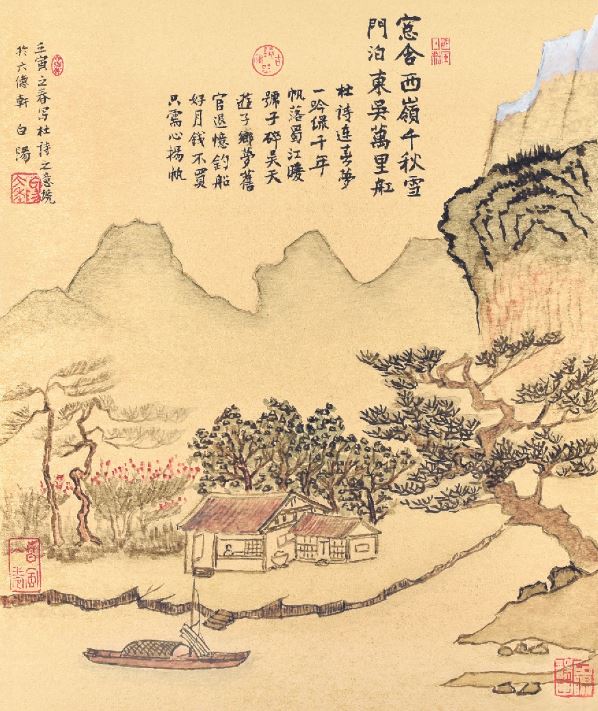 窓含西嶺千秋雪
門泊東吳萬里舡
杜詩連喜夢
一吟保千年
帆落蜀江暖
號子碎吳天
遊子鄉夢舊
官退憶釣船
好月錢不買
只需心揚帆
壬寅之春写杜詩之意境
於六傳軒 白陽